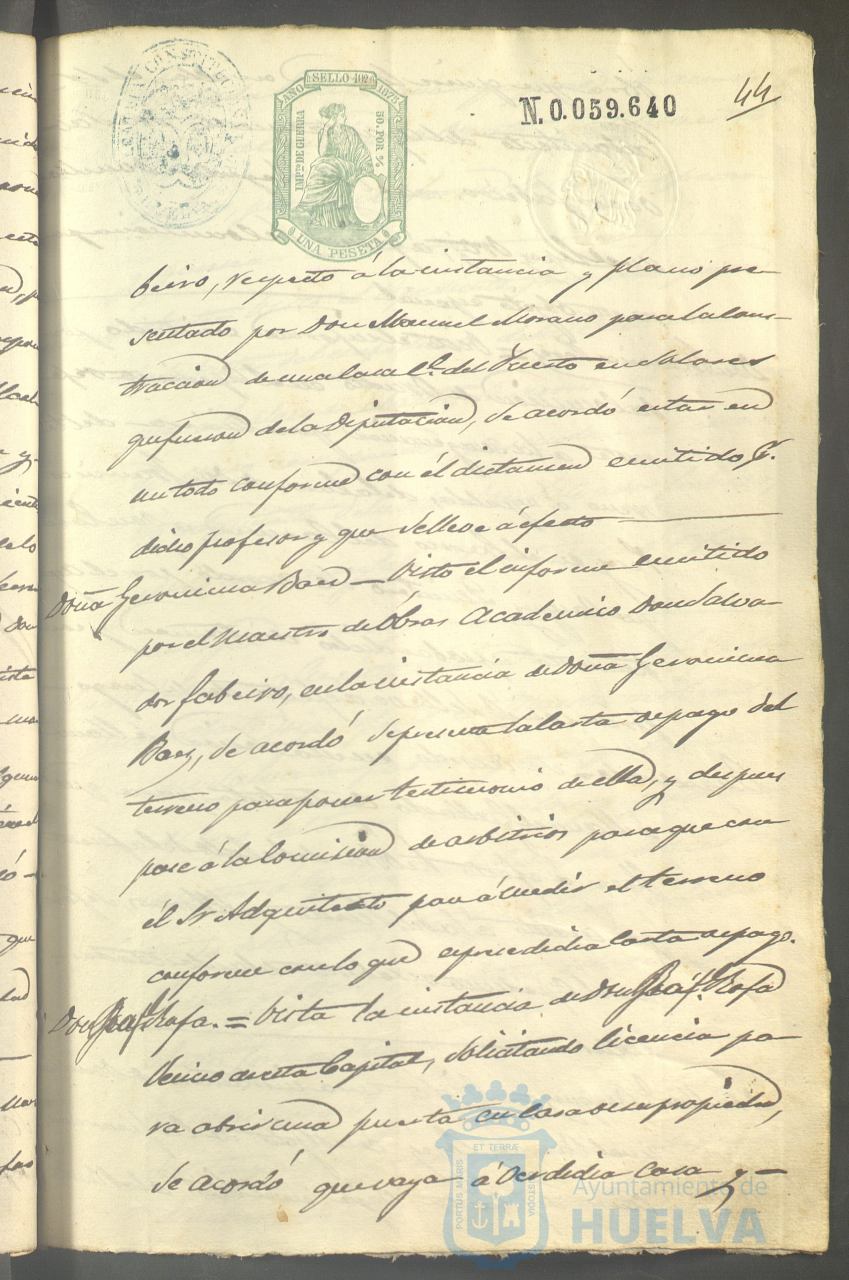 SELLO 10º
AÑO 1875
IMPTO DE GUERRA
50 POR %
UNA PESETA
N. 0.059.640
44
beiro, respecto á la instancia y plano pre-
sentado por Don Manuel Morano para la cons-
truccion de una casa C.e del Puerto en solares
que fueron de la Diputacion, se acordó estar en
un todo conforme con él dictamen emitido p.r
dicho profesor y que se lleve á efecto
Doña Geronima Baes — Visto el informe emitido
por el Maestro de Obras Academico Don Salva
dor Gabeiro, en la instancia de Doña Geronima
Baes, se acordó se presente la carta de pago del
terreno para poner testimonio de ella, y despues
pase á la Comision de arbitrios para que con
él Sr Adquitecto pase á medir el terreno
conforme con lo que esprese dicha carta de pago.
Don Rofa. = Vista la instancia de Don Rofa
Vecino de esta Capital, solicitando licencia pa
ra abrir una puerta en casa de su propiedad,
se acordó que vaya á ver dicha casa y —
PORTUS MARIS
ET TERRÆ
CUSTODIA
Ayuntamiento de
HUELVA